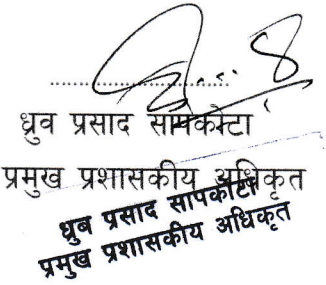 ध्रुव प्रसाद सापकोटा
प्रमुख प्रशासकीय अधिकृत
ध्रुब प्रसाद सापकोटा
प्रमुख प्रशासकीय अधिकृत